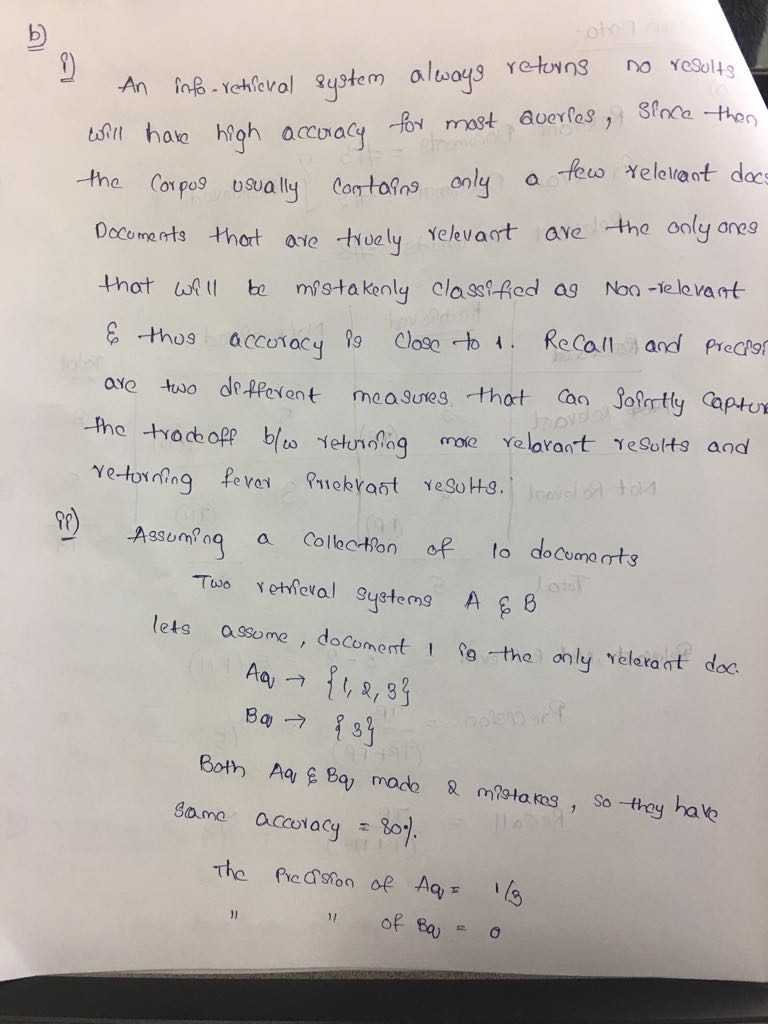 b)
i) An info-retrieval system always returns no results
will have high accuracy for most queries, since then
the corpus usually contains only a few relevant docs
Documents that are truely relevant are the only ones
that will be mistakenly classified as Non-relevant
& thus accuracy is close to 1. Recall and precisi
are two different measures that can jointly captur
the tradeoff b/w returning more relavant results and
returning fever irrelevant results.
ii) Assuming a collection of 10 documents
Two retrieval systems A & B
lets assume, document 1 is the only relevant doc.
Aq → {1, 2, 3}
Bq → {3}
Both Aq & Bq made 2 mistakes, so they have
same accuracy = 80%.
The Precision of Aq = 1/3
" " of Bq = 0